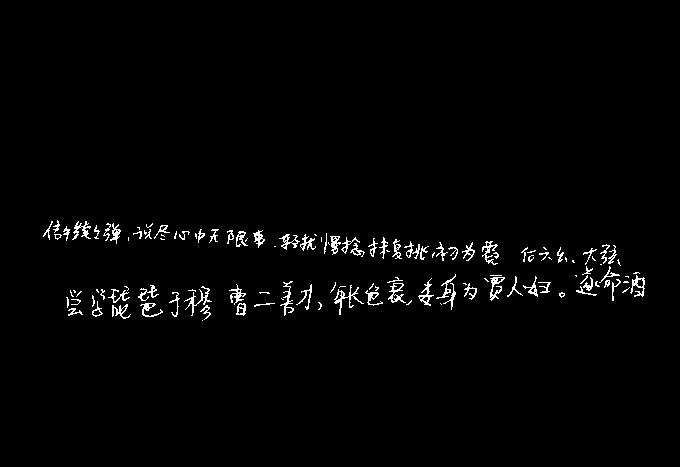 信手续续弹、说尽心中无限事.轻拢慢捻抹复挑初为霓 后六幺、大弦
尝学琵琶于穆 曹二善才,年长色衰委身为贾人妇。遂命酒